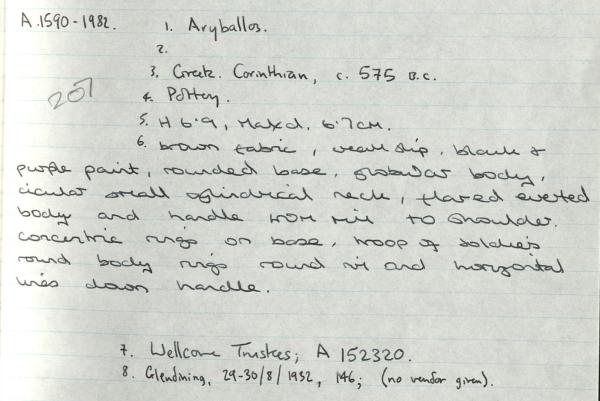 A.1590-1982. 1. Aryballos.
2.
3. Greek. Corinthian, c. 575 B.C.
207
4. Pottery.
5. H 6.9, Max d. 6.7cm.
6. brown fabric, cream slip, black &
purple paint, rounded base, globular body,
circular small cylindrical neck, flared everted
body and handle from rim to shoulder.
concentric rings on base, troop of soldiers
round body rings round rim and horizontal
lines down handle.
7. Wellcome Trustees; A 152320.
8. Glendining, 29-30/8/1932, 146; (no vendor given).